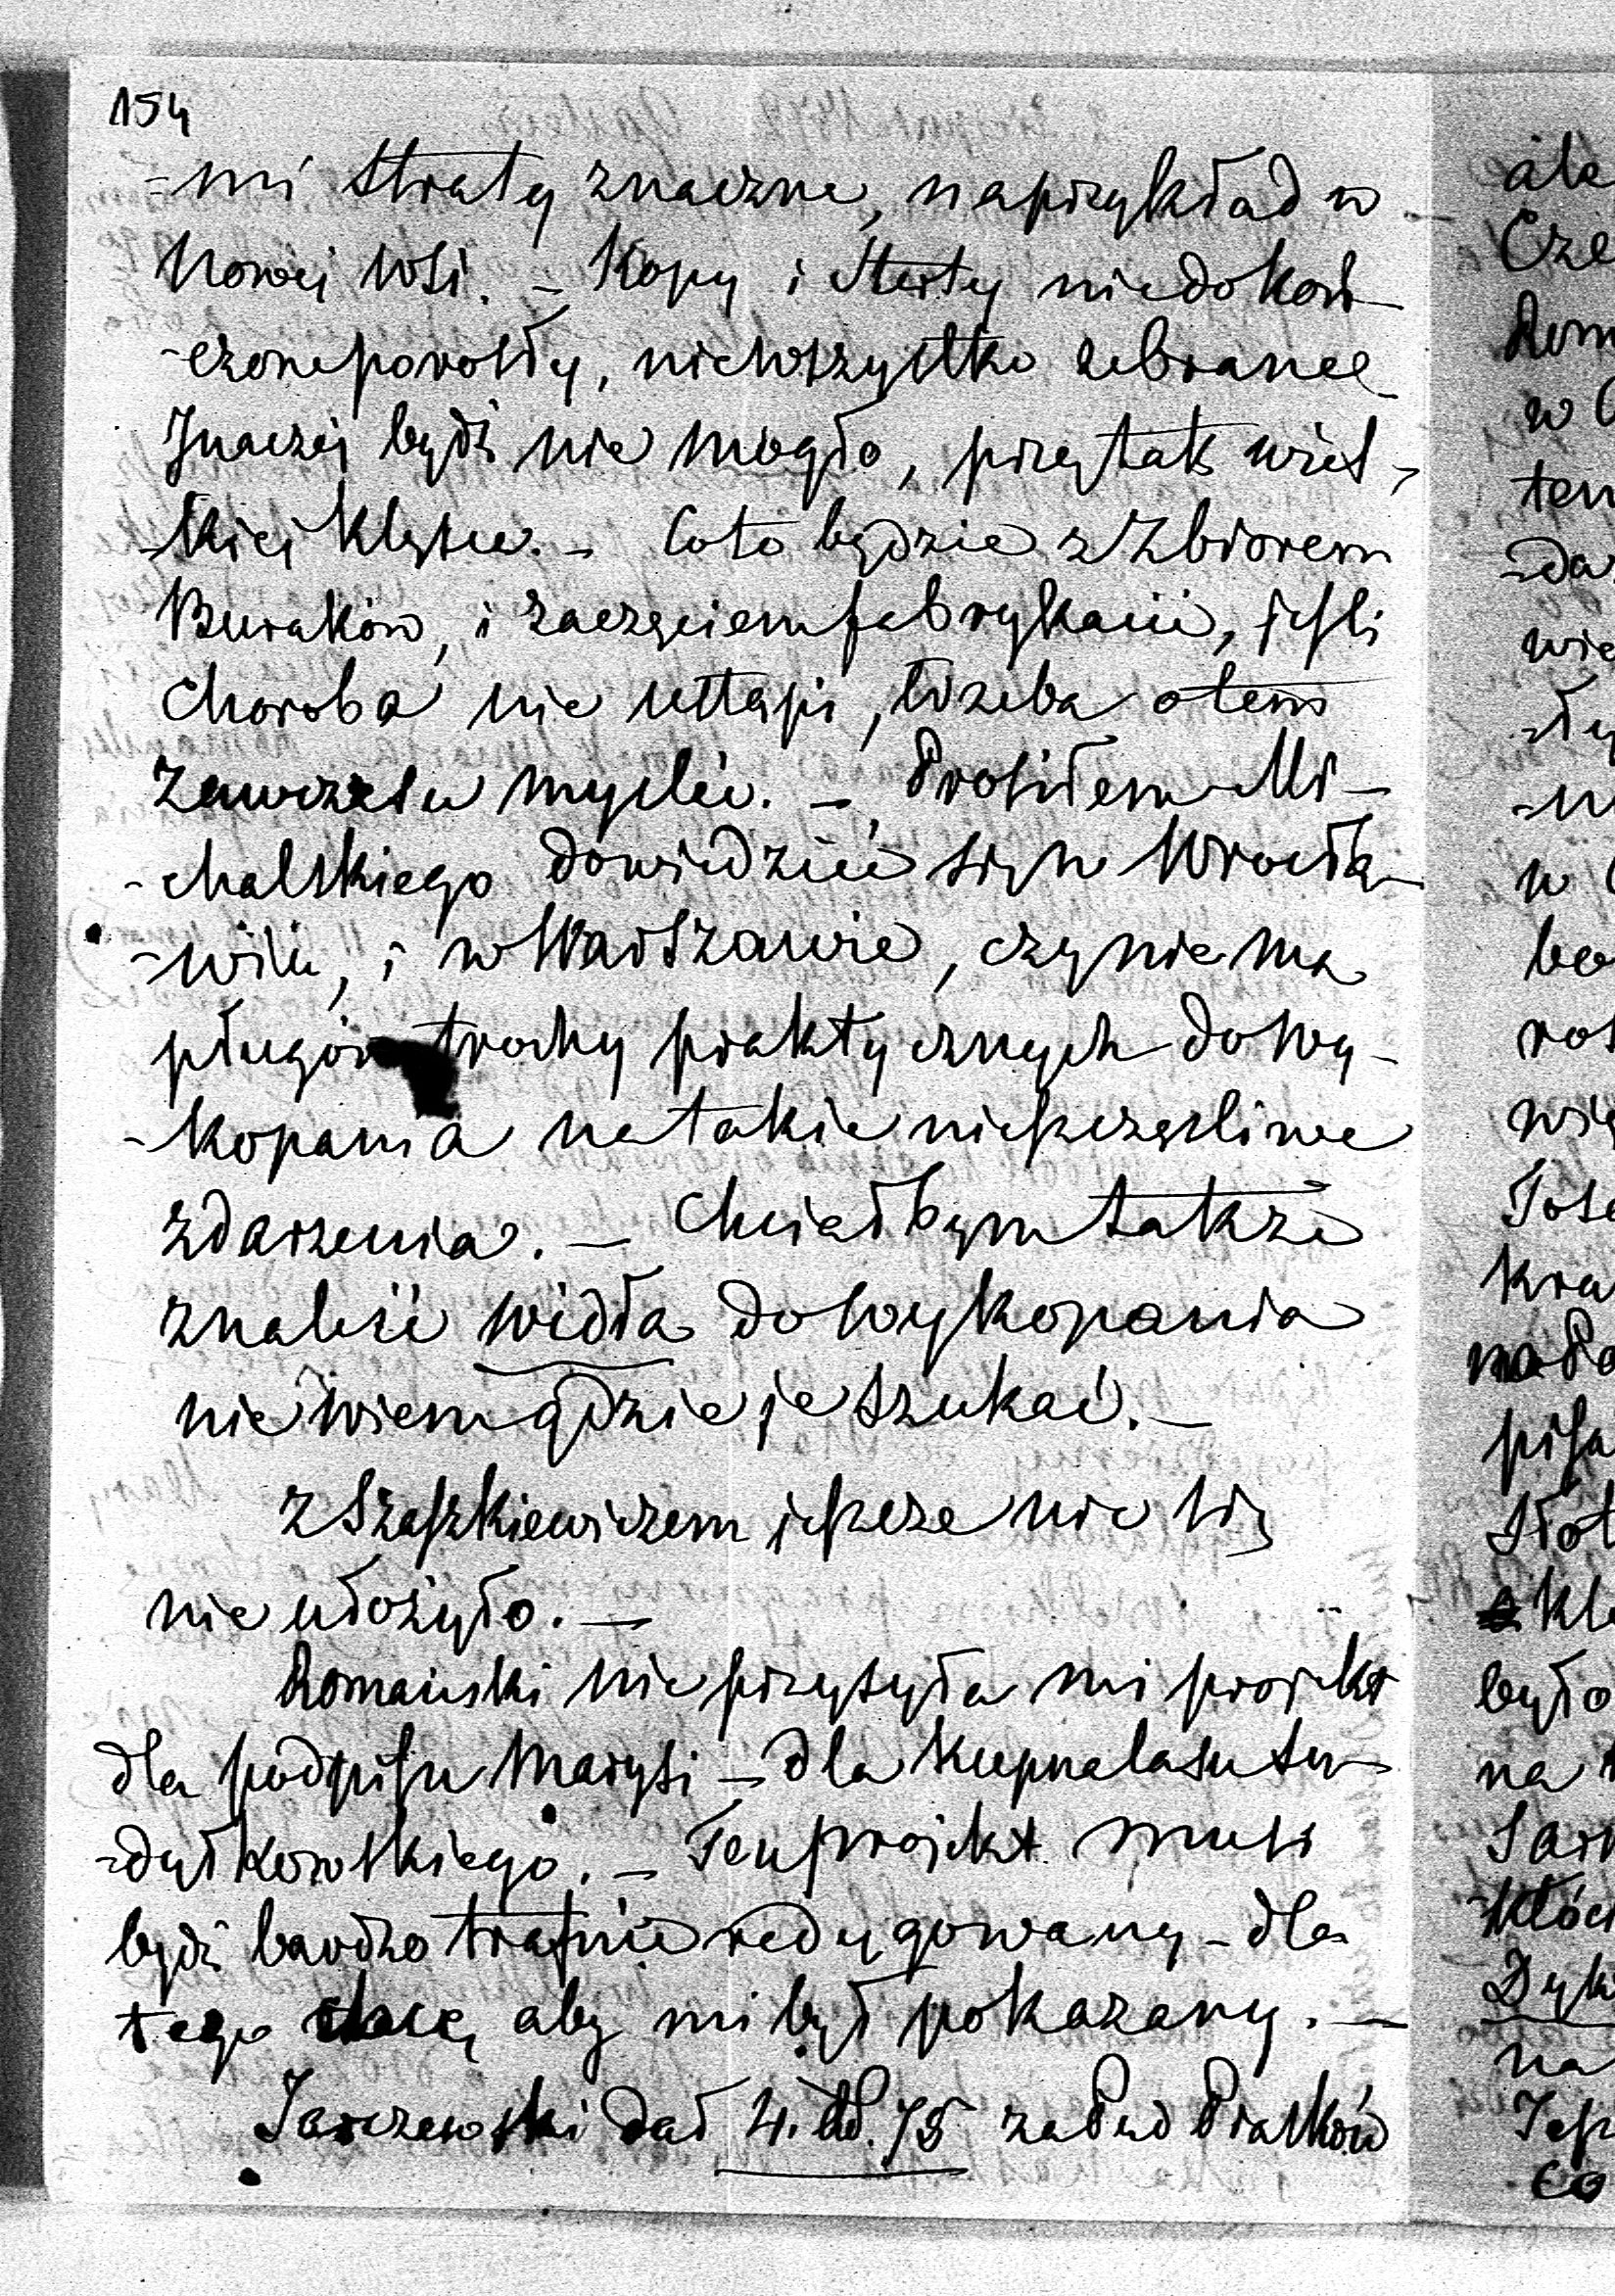 154
-mi straty znaczne, naprzykład w
Nowej Wsi. – Kopy i sterty niedokoń-
-czone porosły, niewszystko zebrane
Jnaczej bydź nie mogło, przy tak wiel-
-kiej klęsce. – Coto będzie z zbiorem
Buraków, i zaczęciem fabrykacii, jeśli
choroba nie ustąpi, trzeba otem
zawczesu myśleć. – Prosiłem Mi-
-chalskiego dowiedzieć się w Wrocła-
-wiu, i w Warszawie, czy nie ma
pługów trochy praktycznych do wy-
-kopania na takie nieszczęśliwe
zdarzenia. – Chciałbym także
znaleść widła do wykopania
nie wiem gdzie je szukać. –
z Szaszkiewiczem jeszcze nic się
nie ułożyło. –
Romański nie przysyła mi projekt
dla podpisu Marysi – dla kupna lasu Su-
-dyłkowskiego. – Ten projekt musi
bydź bardzo trafnie redygowany – dla
tego chcę aby mi był pokazany. –
Jarczewski dał 4. 75 za Pud Piasków
ale
Cze
Rom
w
ten
-da
wie
-ły
w
bo
ros
wię
Tose
kra
pisa
Słot
kl
było
na
Dyk
na
Jesz
co